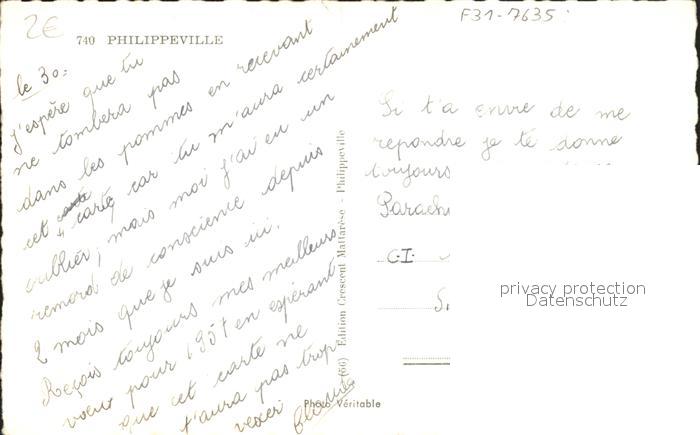 2€
F31-7635
740 PHILIPPEVILLE
le 30:
J'espère que tu
ne tombera pas
dans les pommes en recevant
cet carte, car tu m'aura certainement
oublier, mais moi j'ai eu un
remord de conscience depuis
2 mois que je suis ici.
Reçois toujours mes meilleurs
vœux pour 1957 en espérant
que cet carte ne
t'aura pas trop
vexer
Edition Crescent Mattarèse - Philippeville
Photo Véritable
Si t'a envie de me
repondre je te donne
toujours
Parach
C.I.
S.
privacy protection
Datenschutz